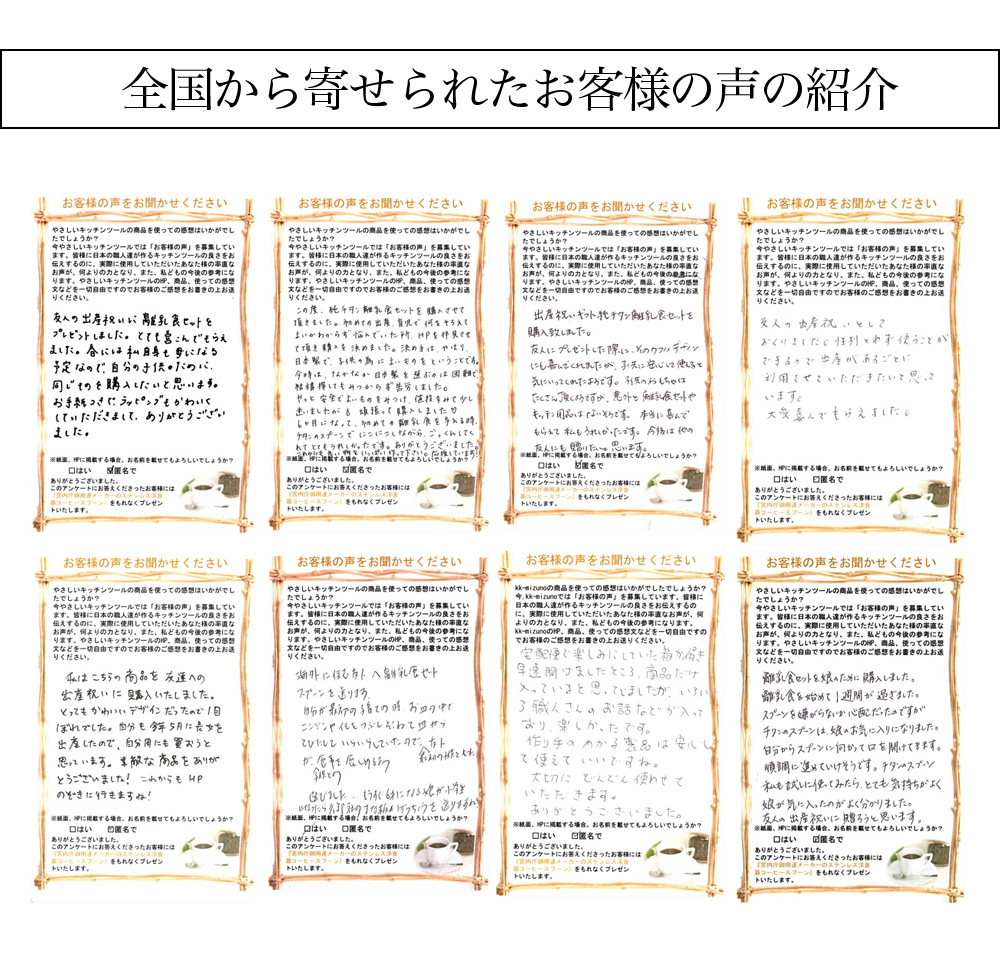 全国から寄せられたお客様の声の紹介
お客様の声をお聞かせください
やさしいキッチンツールの商品を使っての感想はいかがでし
たでしょうか?
今やさしいキッチンツールでは「お客様の声」を募集してい
ます。皆様に日本の職人達が作るキッチンツールの良さをお
伝えするのに、実際に使用していただいたあなた様の率直な
お声が、何よりの力となり、また、私どもの今後の参考にな
ります。やさしいキッチンツールのHP、商品、使っての感想
文などを一切自由ですのでお客様のご感想をお書きの上お送
りください。
友人の出産祝いに離乳食セットを
プレゼントしました。とても喜こんでもらえ
ました。春には私自身も母になる
予定なので、自分の子供のために、
同じものを購入したいと思います。
お手紙つきで、ラッピングもかわいく
していただきまして、ありがとうござい
ました。
※紙面、HPに掲載する場合、お名前を載せてもよろしいでしょうか?
□はい ☑匿名で
ありがとうございました。
このアンケートにお答えくださったお客様には
『宮内庁御用達メーカーのステンレス洋食
器コーヒースプーン』をもれなくプレゼン
トいたします。
お客様の声をお聞かせください
やさしいキッチンツールの商品を使っての感想はいかがでし
たでしょうか?
今やさしいキッチンツールでは「お客様の声」を募集してい
ます。皆様に日本の職人達が作るキッチンツールの良さをお
伝えするのに、実際に使用していただいたあなた様の率直な
お声が、何よりの力となり、また、私どもの今後の参考にな
ります。やさしいキッチンツールのHP、商品、使っての感想
文などを一切自由ですのでお客様のご感想をお書きの上お送
りください。
この度、純チタン離乳食セットを購入させて
頂きました。初めての出産、育児で何をそろえて
よいかわからず悩んでいた所、HPを拝見させ
て頂き購入を決めました。決め手は、やはり、
日本製で、子供の為によいものをということです。
今時は、なかなか日本製を選ぶのは困難で
結構探してもみつからず苦労しました。
やっと安全でよいものをみつけ、値段をみて少し
迷いましたが 頑張って購入しました
6ヶ月になって、初めての離乳食を与える時、
チタンのスプーンでにこにこしながら、ごっくんしてく
れてとてもうれしかったです。ありがとうございました。
これからも良い物をいっぱい作って下さい。応援しています!
※紙面、HPに掲載する場合、お名前を載せてもよろしいでしょうか?
□はい ☑匿名で
ありがとうございました。
このアンケートにお答えくださったお客様には
『宮内庁御用達メーカーのステンレス洋食
器コーヒースプーン』をもれなくプレゼン
トいたします。
お客様の声をお聞かせください
やさしいキッチンツールの商品を使っての感想はいかがでし
たでしょうか?
今やさしいキッチンツールでは「お客様の声」を募集してい
ます。皆様に日本の職人達が作るキッチンツールの良さをお
伝えするのに、実際に使用していただいたあなた様の率直な
お声が、何よりの力となり、また、私どもの今後の参考にな
ります。やさしいキッチンツールのHP、商品、使っての感想
文などを一切自由ですのでお客様のご感想をお書きの上お送
りください。
出産祝いギフト純チタン離乳食セットを
購入致しました。
友人にプレゼントした際に、そのカワイイデザイン
にも喜んでくれましたが、お渡し
気にいってくれたようです。子供のおもちゃは
たくさん頂くようですが、意外と離乳食セットや
キッチン用品はないそうです。本当に喜んで
もらえて私もうれしかったです。今後は他の
友人にも贈りたいと思います。
※紙面、HPに掲載する場合、お名前を載せてもよろしいでしょうか?
□はい ☑匿名で
ありがとうございました。
このアンケートにお答えくださったお客様には
『宮内庁御用達メーカーのステンレス洋食
器コーヒースプーン』をもれなくプレゼン
トいたします。
お客様の声をお聞かせください
やさしいキッチンツールの商品を使っての感想はいかがでし
たでしょうか?
今やさしいキッチンツールでは「お客様の声」を募集してい
ます。皆様に日本の職人達が作るキッチンツールの良さをお
伝えするのに、実際に使用していただいたあなた様の率直な
お声が、何よりの力となり、また、私どもの今後の参考にな
ります。やさしいキッチンツールのHP、商品、使っての感想
文などを一切自由ですのでお客様のご感想をお書きの上お送
りください。
友人の出産祝いとして
おくりました。性別とわず使うことが
できるので出産があるごとに
利用させていただきたいと思って
います。
大変喜んでもらえました。
※紙面、HPに掲載する場合、お名前を載せてもよろしいでしょうか?
□はい □匿名で
ありがとうございました。
このアンケートにお答えくださったお客様には
『宮内庁御用達メーカーのステンレス洋食
器コーヒースプーン』をもれなくプレゼン
トいたします。
お客様の声をお聞かせください
やさしいキッチンツールの商品を使っての感想はいかがでし
たでしょうか?
今やさしいキッチンツールでは「お客様の声」を募集してい
ます。皆様に日本の職人達が作るキッチンツールの良さをお
伝えするのに、実際に使用していただいたあなた様の率直な
お声が、何よりの力となり、また、私どもの今後の参考にな
ります。やさしいキッチンツールのHP、商品、使っての感想
文などを一切自由ですのでお客様のご感想をお書きの上お送
りください。
私はこちらの商品を友達への
出産祝いに購入いたしました。
とってもかわいいデザインだったので1目
ぼれでした。自分も今年5月に長女を
出産したので、自分用にも買おうと
思っています。素敵な商品をありが
とうございました!これからもHP
のぞきに行きますね!
※紙面、HPに掲載する場合、お名前を載せてもよろしいでしょうか?
□はい ☑匿名で
ありがとうございました。
このアンケートにお答えくださったお客様には
『宮内庁御用達メーカーのステンレス洋食
器コーヒースプーン』をもれなくプレゼン
トいたします。
お客様の声をお聞かせください
やさしいキッチンツールの商品を使っての感想はいかがでし
たでしょうか?
今やさしいキッチンツールでは「お客様の声」を募集してい
ます。皆様に日本の職人達が作るキッチンツールの良さをお
伝えするのに、実際に使用していただいたあなた様の率直な
お声が、何よりの力となり、また、私どもの今後の参考にな
ります。やさしいキッチンツールのHP、商品、使っての感想
文などを一切自由ですのでお客様のご感想をお書きの上お送
りください。
海外に住む友人へ離乳食セット
スプーンを送ります。
自分が最初の子育ての時 お皿の中で
※紙面、HPに掲載する場合、お名前を載せてもよろしいでしょうか?
☑はい □匿名で
ありがとうございました。
このアンケートにお答えくださったお客様には
『宮内庁御用達メーカーのステンレス洋食
器コーヒースプーン』をもれなくプレゼン
トいたします。
お客様の声をお聞かせください
kk-mizunoの商品を使っての感想はいかがでしたでしょうか?
今、kk-mizunoでは「お客様の声」を募集しています。皆様に
日本の職人達が作るキッチンツールの良さをお伝えするの
に、実際に使用していただいたあなた様の率直なお声が、何
よりの力となり、また、私どもの今後の参考になります。
kk-mizunoのHP、商品、使っての感想文などを一切自由ですの
でお客様のご感想をお書きの上お送りください。
宅配便で楽しみにしていた箱が届き
早速開けましたところ、商品だけ
入っていると思っていましたが、いろい
ろ職人さんのお話などが入って
おり、楽しかったです。
作り手のわかる製品は安心し
て使えていいですね。
大切にどんどん使わせて
いただきます。
ありがとうございました。
※紙面、HPに掲載する場合、お名前を載せてもよろしいでしょうか?
□はい ☑匿名で
ありがとうございました。
このアンケートにお答えくださったお客様には
『宮内庁御用達メーカーのステンレス洋食
器コーヒースプーン』をもれなくプレゼン
トいたします。
お客様の声をお聞かせください
やさしいキッチンツールの商品を使っての感想はいかがでし
たでしょうか?
今やさしいキッチンツールでは「お客様の声」を募集してい
ます。皆様に日本の職人達が作るキッチンツールの良さをお
伝えするのに、実際に使用していただいたあなた様の率直な
お声が、何よりの力となり、また、私どもの今後の参考にな
ります。やさしいキッチンツールのHP、商品、使っての感想
文などを一切自由ですのでお客様のご感想をお書きの上お送
りください。
離乳食セットを娘のために購入しました。
離乳食を始めて1週間が過ぎました。
スプーンを嫌がらないか心配だったのですが
チタンのスプーンは、娘のお気に入りになりました。
自分からスプーンに向かって口を開けてきます。
順調に進めていけそうです。チタンのスプーン
私も試しに使ってみたら、とても気持ちがよく
娘が気に入ったのがよく分かりました。
友人の出産祝いに贈ろうと思います。
※紙面、HPに掲載する場合、お名前を載せてもよろしいでしょうか?
□はい ☑匿名で
ありがとうございました。
このアンケートにお答えくださったお客様には
『宮内庁御用達メーカーのステンレス洋食
器コーヒースプーン』をもれなくプレゼン
トいたします。